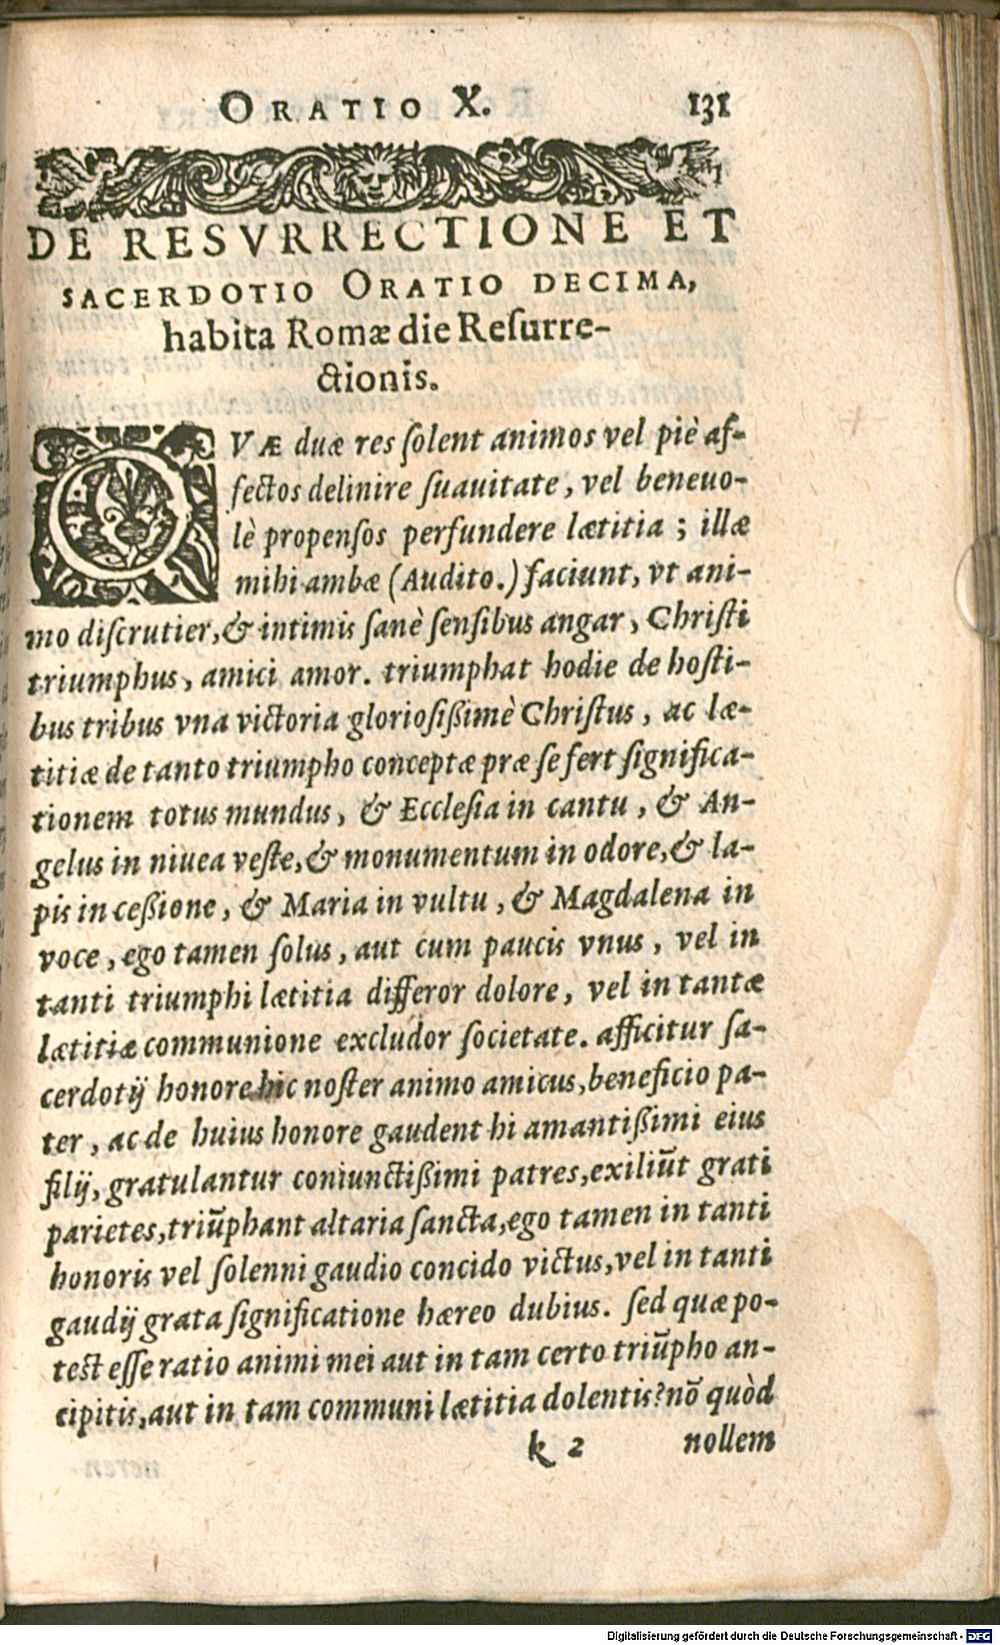 ORATIO X. 131
DE RESVRRECTIONE ET
SACERDOTIO ORATIO DECIMA,
habita Romæ die Reſurre-
ctionis.
QVÆ duæ res ſolent animos vel piè af-
fectos delinire ſuauitate, vel beneuo-
lè propenſos perfundere lætitia ; illæ
mihi ambæ (Audito.) faciunt, vt ani-
mo diſcrutier, & intimis ſanè ſenſibus angar, Chriſti
triumphus, amici amor. triumphat hodie de hoſti-
bus tribus vna victoria glorioſißimè Chriſtus, ac læ-
titiæ de tanto triumpho conceptæ præ ſe fert ſignifica-
tionem totus mundus, & Eccleſia in cantu, & An-
gelus in niuea veſte, & monumentum in odore, & la-
pis in ceßione, & Maria in vultu, & Magdalena in
voce, ego tamen ſolus, aut cum paucis vnus, vel in
tanti triumphi lætitia differor dolore, vel in tantæ
lætitiæ communione excludor ſocietate. afficitur ſa-
cerdotij honore hic noſter animo amicus, beneficio pa-
ter, ac de huius honore gaudent hi amantißimi eius
filij, gratulantur coniunctißimi patres, exiliũt grati
parietes, triũphant altaria ſancta, ego tamen in tanti
honoris vel ſolenni gaudio concido victus, vel in tanti
gaudij grata ſignificatione hæreo dubius. ſed quæ po-
teſt eſſe ratio animi mei aut in tam certo triũpho an-
cipitis, aut in tam communi lætitia dolentis? nõ quòd
k 2 nollem
Digitalisierung gefördert durch die Deutsche Forschungsgemeinschaft - DFG